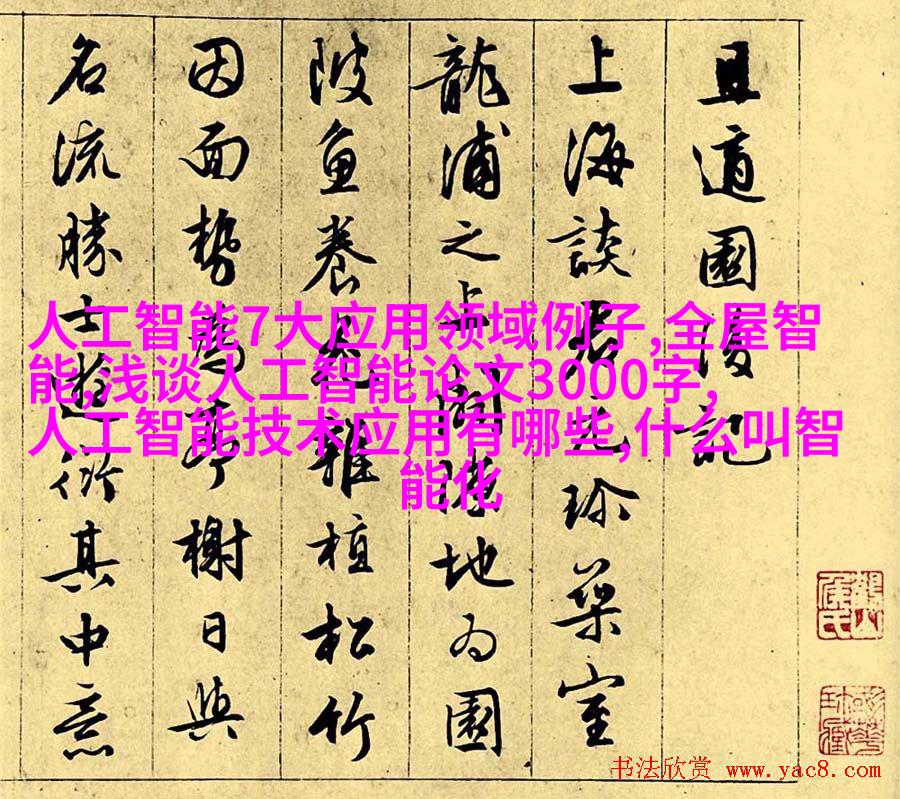 且適園後記
上海談君元珍築室
龍浦之上闢勝地為園
陂魚養花雜植松竹
因面勢為亭榭日與
名流勝士遊衍其中意
人工智能7大应用领域例子,全屋智
能,浅谈人工智能论文3000字,
人工智能技术应用有哪些,什么叫智
能化
书法欣赏 www.yac8.com